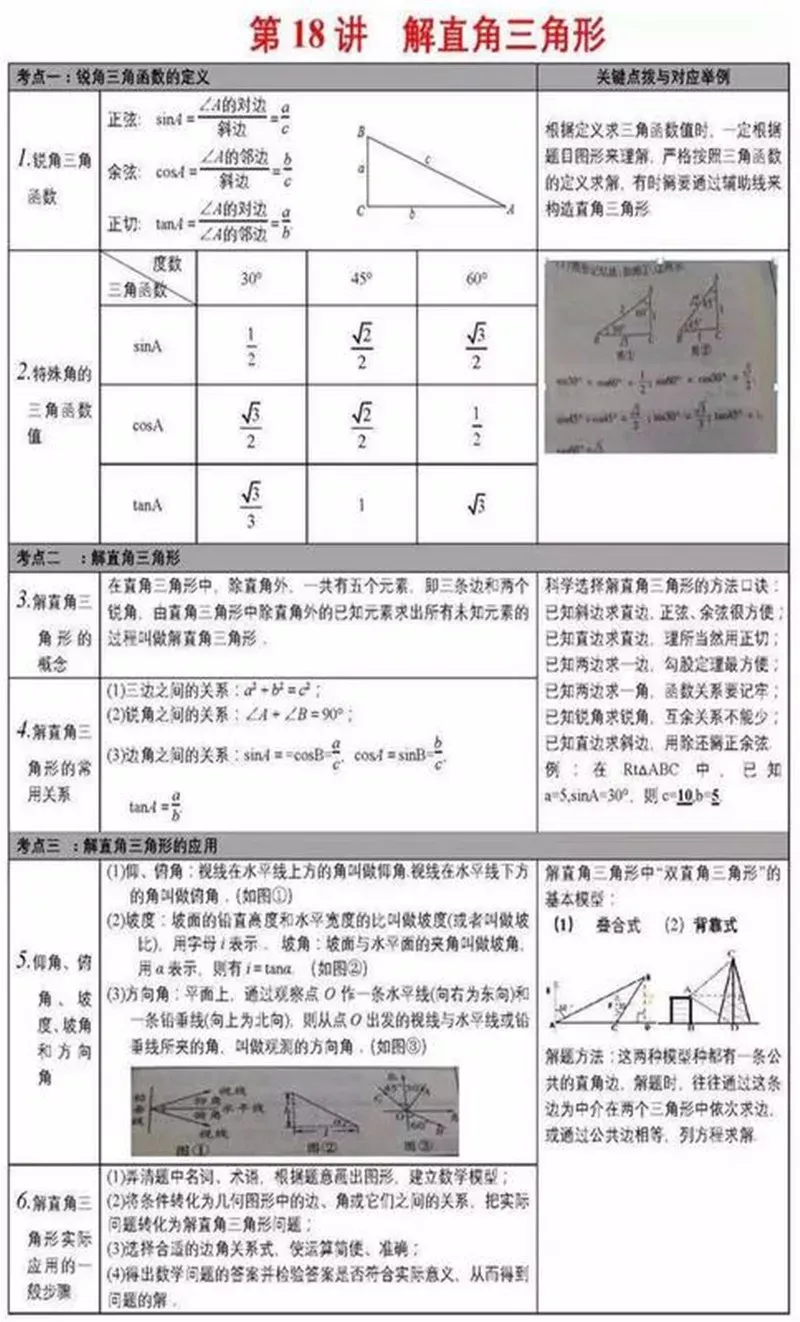 第 18 讲 解直角三角形
考点一：锐角三角函数的定义
关键点拨与对应举例
1.锐角三角
函数
正弦: sinA=∠A的对边/斜边=a/c
余弦: cosA=∠A的邻边/斜边=b/c
正切: tanA=∠A的对边/∠A的邻边=a/b.
B
a
c
C
b
A
根据定义求三角函数值时，一定根据
题目图形来理解，严格按照三角函数
的定义求解，有时需要通过辅助线来
构造直角三角形.
2.特殊角的
三角函数
值
度数
三角函数
30°
45°
60°
sinA
1/2
√2/2
√3/2
cosA
√3/2
√2/2
1/2
tanA
√3/3
1
√3
图①
图②
sin30°=cos60°=1/2; sin60°=cos30°=√3/2;
sin45°=cos45°=√2/2; tan30°=√3/3; tan45°=1;
tan60°=√3
考点二 ：解直角三角形
3.解直角三
角形的
概念
在直角三角形中，除直角外，一共有五个元素，即三条边和两个
锐角，由直角三角形中除直角外的已知元素求出所有未知元素的
过程叫做解直角三角形．
科学选择解直角三角形的方法口诀：
已知斜边求直边，正弦、余弦很方便；
已知直边求直边，理所当然用正切；
已知两边求一边，勾股定理最方便；
已知两边求一角，函数关系要记牢；
已知锐角求锐角，互余关系不能少；
已知直边求斜边，用除还需正余弦.
例：在 Rt△ABC 中，已知
a=5,sinA=30°，则 c=10,b=5.
4.解直角三
角形的常
用关系
(1)三边之间的关系：a²+b²=c²；
(2)锐角之间的关系：∠A+∠B=90°；
(3)边角之间的关系：sinA==cosB=a/c, cosA=sinB=b/c,
tanA=a/b.
考点三 ：解直角三角形的应用
5.仰角、俯
角、坡
度、坡角
和方向
角
(1)仰、俯角：视线在水平线上方的角叫做仰角.视线在水平线下方
的角叫做俯角．(如图①)
(2)坡度：坡面的铅直高度和水平宽度的比叫做坡度(或者叫做坡
比)，用字母 i 表示． 坡角：坡面与水平面的夹角叫做坡角，
用 α 表示，则有 i=tanα. (如图②)
(3)方向角：平面上，通过观察点 O 作一条水平线(向右为东向)和
一条铅垂线(向上为北向)，则从点 O 出发的视线与水平线或铅
垂线所夹的角，叫做观测的方向角．(如图③)
铅垂线
视线
仰角
水平线
俯角
视线
图①
图②
图③
解直角三角形中“双直角三角形”的
基本模型：
(1) 叠合式 (2) 背靠式
解题方法：这两种模型种都有一条公
共的直角边，解题时，往往通过这条
边为中介在两个三角形中依次求边，
或通过公共边相等，列方程求解.
6.解直角三
角形实际
应用的一
般步骤
(1)弄清题中名词、术语，根据题意画出图形，建立数学模型；
(2)将条件转化为几何图形中的边、角或它们之间的关系，把实际
问题转化为解直角三角形问题；
(3)选择合适的边角关系式，使运算简便、准确；
(4)得出数学问题的答案并检验答案是否符合实际意义，从而得到
问题的解．